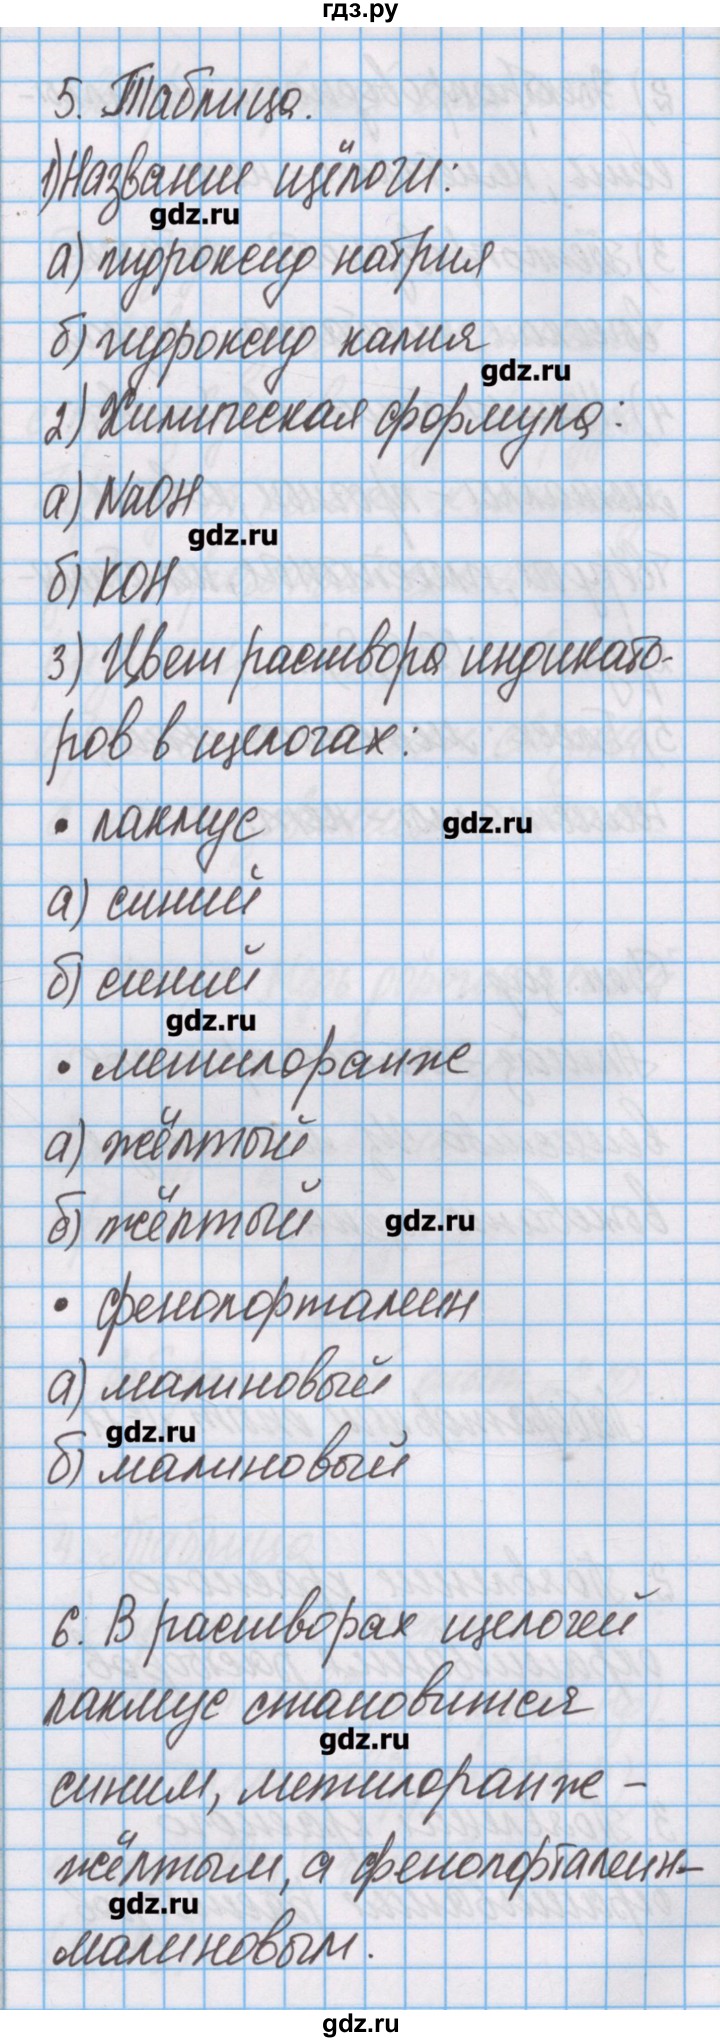 гдз.ру
5. Таблица.
1) Название щёлочи:
gdz.ru
а) гидроксид натрия
б) гидроксид калия
gdz.ru
2) Химическая формула:
а) NaOH
gdz.ru
б) KOH
3) Цвет раствора индикато-
ров в щелочах:
• лакмус
gdz.ru
а) синий
б) синий
gdz.ru
• метилоранж
а) жёлтый
б) жёлтый
gdz.ru
• фенолфталеин
а) малиновый
gdz.ru
б) малиновый
6. В растворах щелочей
лакмус становится
gdz.ru
синим, метилоранж -
жёлтым, а фенолфталеин -
gdz.ru
малиновым.
gdz.ru